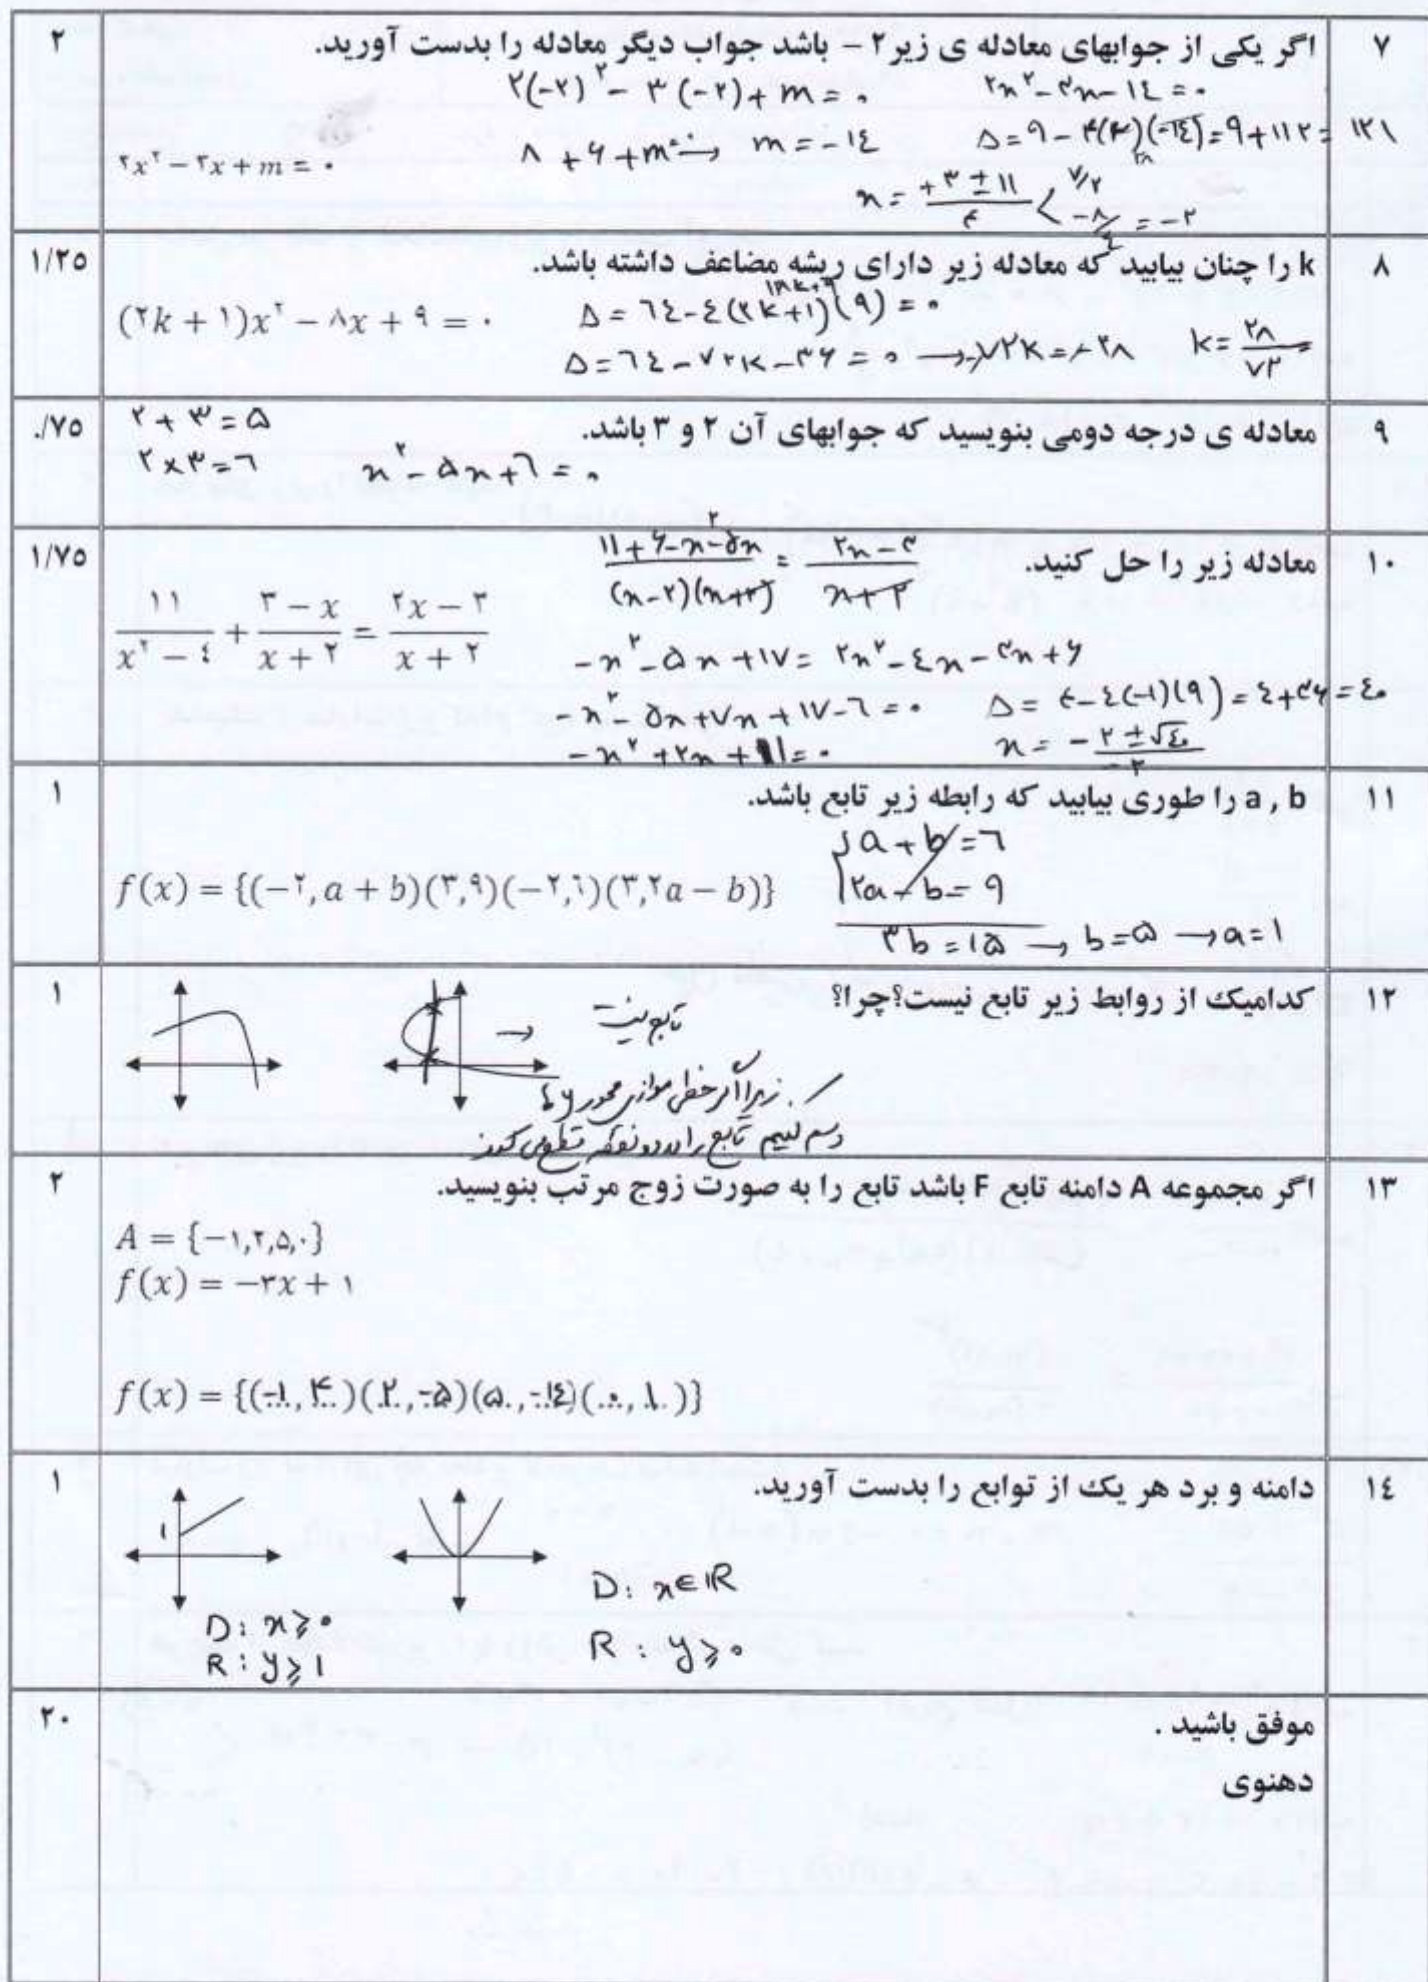 ۷ اگر یکی از جوابهای معادله ی زیر ۲ – باشد جواب دیگر معادله را بدست آورید. ۲
۲(-۲)^۲ - ۳(-۲) + m = ۰
۲x^۲ - ۳x - ۱٤ = ۰
۲x^۲ - ۳x + m = ۰
۸ + ۶ + m = ۰ → m = -۱٤
Δ = ۹ - ۴(۲)(-۱٤) = ۹ + ۱۱۲ = ۱۲۱
x = +۳ ± ۱۱ / ۴ < ۷/۲
-۸/٤ = -۲
۸ k را چنان بیابید که معادله زیر دارای ریشه مضاعف داشته باشد. ۱/۲۵
(۲k + ۱)x^۲ - ۸x + ۹ = ۰
۱۸k+۹
Δ = ٦٤ - ٤(۲k+۱)(۹) = ۰
Δ = ٦٤ - ۷۲k - ۳۶ = ۰ → -۷۲k = -۲۸ k = ۲۸/۷۲
۹ معادله ی درجه دومی بنویسید که جوابهای آن ۲ و ۳ باشد. ./۷۵
۲ + ۳ = ۵
۲ × ۳ = ٦
x^۲ - ۵x + ٦ = ۰
۱۰ معادله زیر را حل کنید. ۱/۷۵
۱۱/(x^۲ - ٤) + (۳ - x)/(x + ۲) = (۲x - ۳)/(x + ۲)
(۱۱ + ۶ - x^۲ - ۵x)/((x-۲)(x+۲)) = (۲x - ۳)/(x + ۲)
-x^۲ - ۵x + ۱۷ = ۲x^۲ - ٤x - ۳x + ۶
-x^۲ - ۵x + ۷x + ۱۷ - ٦ = ۰
Δ = ٤ - ٤(-۱)(۹) = ٤ + ۳۶ = ٤۰
-x^۲ + ۲x + ۱۱ = ۰
x = -۲ ± √٤۰ / -۲
۱۱ a , b را طوری بیابید که رابطه زیر تابع باشد. ۱
f(x) = {(-۲, a + b)(۳,۹)(-۲,٦)(۳,۲a - b)}
a + b = ٦
۲a - b = ۹
۳b = ۱۵ → b = ۵ → a = ۱
۱۲ کدامیک از روابط زیر تابع نیست؟چرا؟ ۱
→ تابع نیست
زیرا اگر خطی موازی محور y ها
رسم کنیم تابع را در دو نقطه قطع می کند
۱۳ اگر مجموعه A دامنه تابع F باشد تابع را به صورت زوج مرتب بنویسید. ۲
A = {-۱,۲,۵,۰}
f(x) = -۳x + ۱
f(x) = {(-۱, ۴)(۲, -۵)(۵, -۱٤)(۰, ۱)}
۱٤ دامنه و برد هر یک از توابع را بدست آورید. ۱
۱
D: x ∈ ℝ
R: y ⩾ ۰
D: x ⩾ ۰
R: y ⩾ ۱
موفق باشید . ۲۰
دهنوی